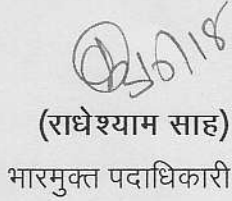 (राधेश्याम साह)
भारमुक्त पदाधिकारी